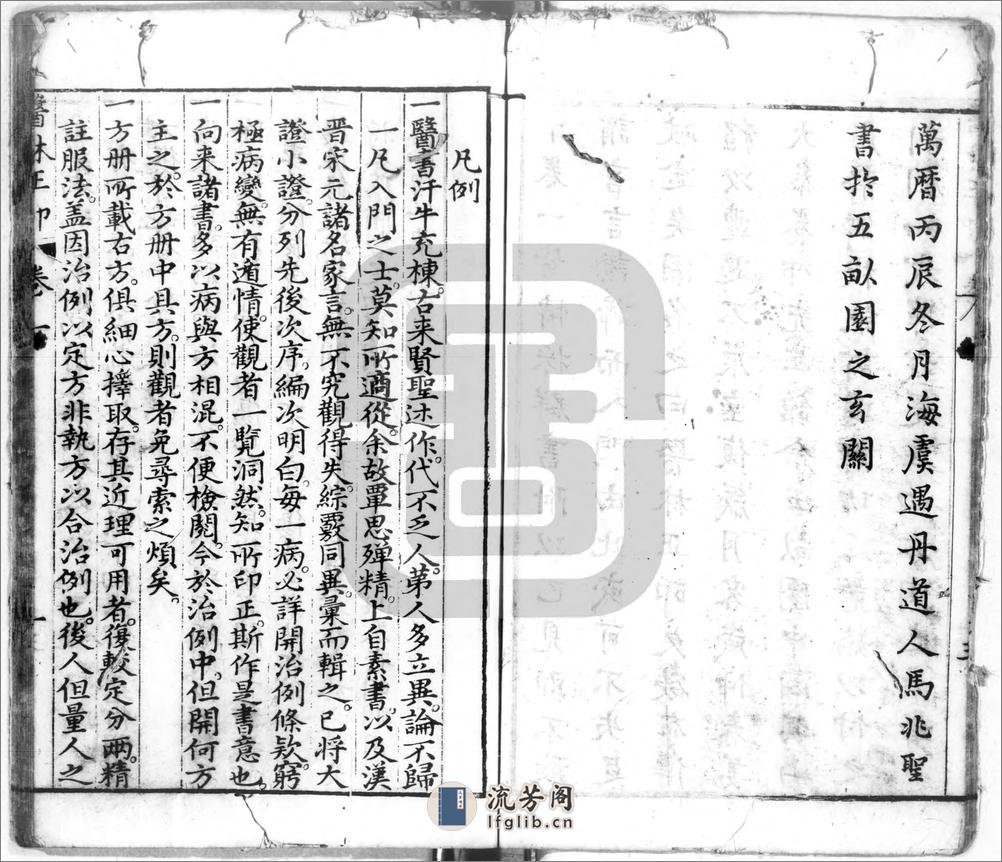 萬曆丙辰冬月海虞遇丹道人馬兆聖
書於五畝園之玄關
凡例
一醫書汗牛充棟。古来賢聖述作。代不乏人。第人多立異。論不歸
一凡入門之士。莫知所適從。余故覃思殫精。上自素書。以及漢
晋宋元諸名家言。無不究觀得失。綜覈同異。彙而輯之。已将大
證小證。分列先後次序。編次明白。每一病。必詳開治例條欵。窮
極病變。無有遁情。使觀者一覧洞然。知所印正。斯作是書意也。
一向来諸書。多以病與方相混。不便檢閱。今於治例中。但開何方
主之。於方册中具方。則觀者免尋索之煩矣。
一方册所載右方。俱細心擇取。存其近理可用者。復較定分兩。精
註服法。盖因治例以定方。非執方以合治例也。後人但量人之
醫林正印 卷 一
流芳阁
lfglib.cn